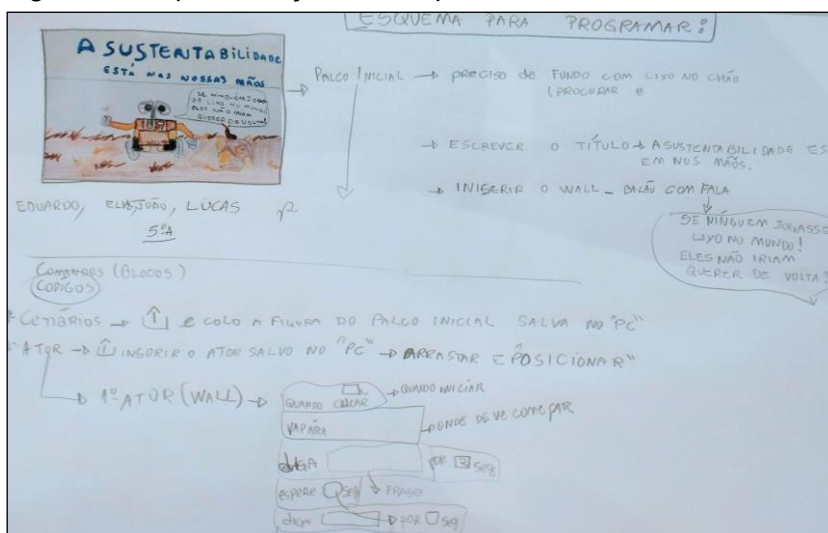 ESQUEMA PARA PROGRAMAR:
A SUSTENTABILIDADE
ESTÁ NAS NOSSAS MÃOS
SE NINGUÉM JOGA
DE LIXO NO MUNDO
ELES NÃO IRIAM
QUERER DE VOLTA!
PALCO INICIAL → preciso do FUNDO COM LIXO NO CHÃO
(PROCURAR e
→ ESCREVER O TÍTULO → A SUSTENTABILIDADE ES
EM NOS MÃOS.
→ INISERIR O WALL_ BALÃO COM FALA
SE NINGUEM JOGASSE
LIXO NO MUNDO!
ELES NÃO IRIAM
QUERER DE VOLTA
EDUARDO, JOÃO, LUCAS
5ºA
(BLOCOS)
CODIGOS
CENÁRIOS → e COLO A FIGURA DO PALCO INICIAL SALVA NO "PC"
ATOR → INSERIR O ATOR SALVO NO "PC" → ARRASTAR E POSICIONAR"
1º ATOR (WALL) → QUANDO CLICAR → QUANDO INICIAR
VAPARA → ONDE DEVE COMEÇAR
diGA POR 2 seg
espere seg FRASE
diga → POR seg